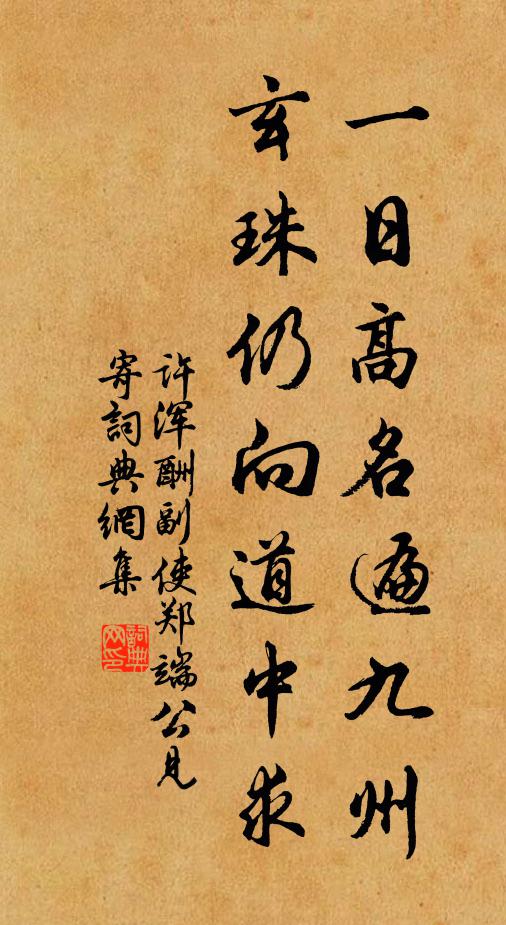 一日高名遍九州
玄珠仍向道中求
许浑酬副使郑端公见
寄詞典網集
詞典
网印